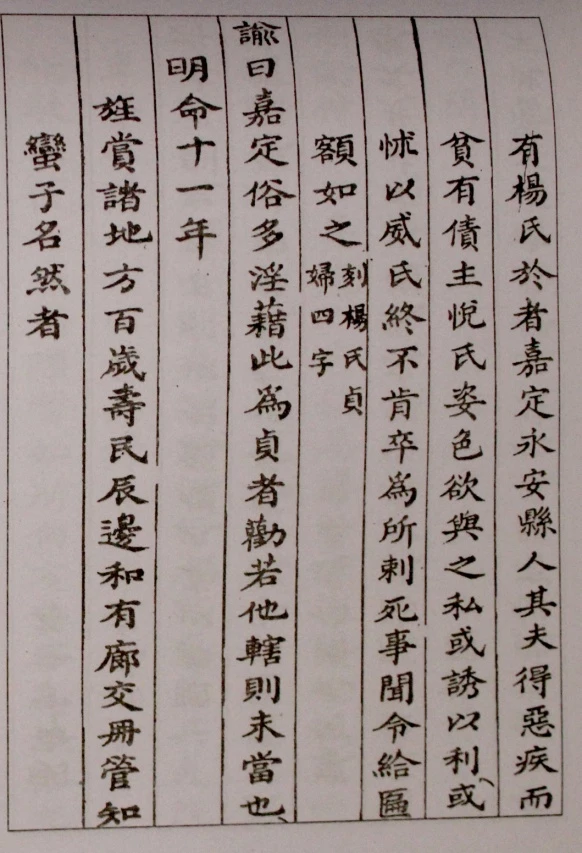 有楊氏於者嘉定永安縣人其夫得惡疾而
貧有債主悅氏姿色欲與之私或誘以利或
怵以威氏終不肯卒為所刺死事聞令給匾
額如之刻楊氏貞婦四字
諭曰嘉定俗多淫藉此為貞者勸若他轄則未當也
明命十一年
旌賞諸地方百歲壽民辰邊和有廊交冊管知
蠻子名然者